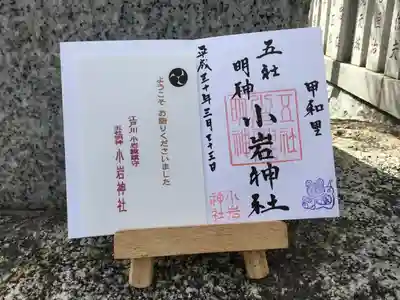 甲和里
五社
明神
五社
明神
小岩神社
小岩
神社
平成三十年三月二十五日
ようこそ お詣りくださいました
江戸川 小岩総鎮守
五社明神 小岩神社